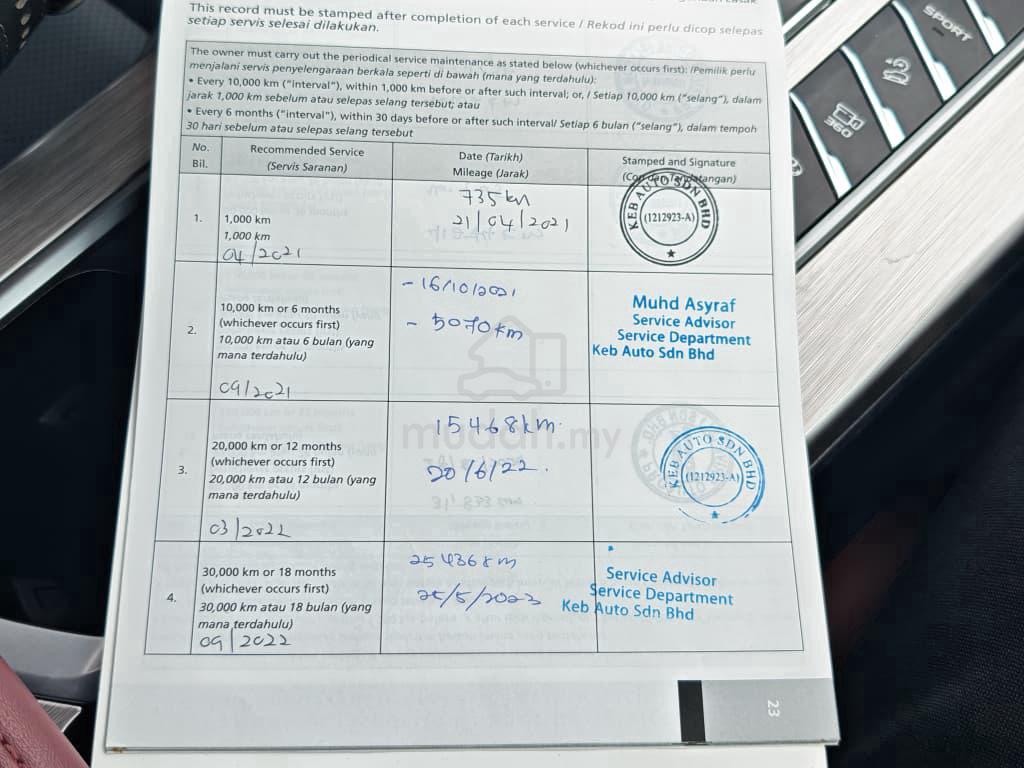 This record must be stamped after completion of each service / Rekod ini perlu dicop selepas
setiap servis selesai dilakukan.
The owner must carry out the periodical service maintenance as stated below (whichever occurs first): /Pemilik perlu
menjalani servis penyelengaraan berkala seperti di bawah (mana yang terdahulu):
• Every 10,000 km ("interval"), within 1,000 km before or after such interval; or, / Setiap 10,000 km ("selang"), dalam
jarak 1,000 km sebelum atau selepas selang tersebut; atau
• Every 6 months ("interval"), within 30 days before or after such interval/ Setiap 6 bulan ("selang"), dalam tempoh
30 hari sebelum atau selepas selang tersebut
No.
Bil.
Recommended Service
(Servis Saranan)
Date (Tarikh)
Mileage (Jarak)
Stamped and Signature
(Cop dan Tandatangan)
1.
1,000 km
1,000 km
04/2021
735km
21/04/2021
KEB AUTO SDN BHD
(1212923-A)
2.
10,000 km or 6 months
(whichever occurs first)
10,000 km atau 6 bulan (yang
mana terdahulu)
09/2021
- 16/10/2021
- 5070km
Muhd Asyraf
Service Advisor
Service Department
Keb Auto Sdn Bhd
3.
20,000 km or 12 months
(whichever occurs first)
20,000 km atau 12 bulan (yang
mana terdahulu)
03/2022
15468km.
20/6/22.
KEB AUTO SDN BHD
(1212923-A)
4.
30,000 km or 18 months
(whichever occurs first)
30,000 km atau 18 bulan (yang
mana terdahulu)
09/2022
25436km
25/5/2023
Service Advisor
Service Department
Keb Auto Sdn Bhd
23
mudah.my
SPORT
360